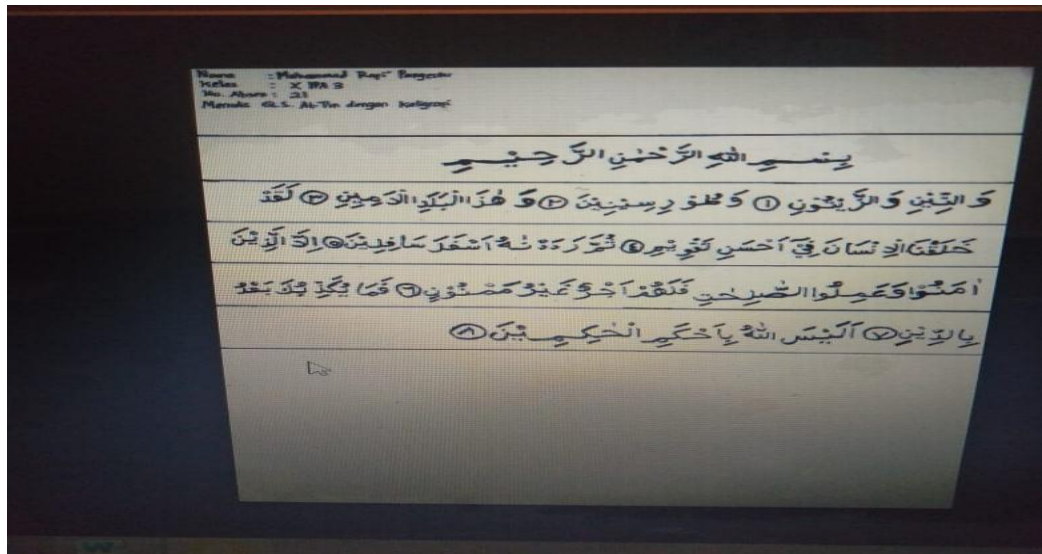 Nama : Muhammad Rafi Pangestu
Kelas : X IPA 3
No. Absen : 21
Menulis Q.S. At-Tin dengan kaligrafi
بِسْمِ اللهِ الرَّحْمٰنِ الرَّحِيْمِ
وَالتِّيْنِ وَالزَّيْتُوْنِ ١ وَطُوْرِ سِيْنِيْنَ ٢ وَهٰذَا الْبَلَدِ الْاَمِيْنِ ٣ لَقَدْ
خَلَقْنَا الْاِنْسَانَ فِيْٓ اَحْسَنِ تَقْوِيْمٍ ٤ ثُمَّ رَدَدْنٰهُ اَسْفَلَ سَافِلِيْنَ ٥ اِلَّا الَّذِيْنَ
اٰمَنُوْا وَعَمِلُوا الصّٰلِحٰتِ فَلَهُمْ اَجْرٌ غَيْرُ مَمْنُوْنٍ ٦ فَمَا يُكَذِّبُكَ بَعْدُ
بِالدِّيْنِ ٧ اَلَيْسَ اللهُ بِاَحْكَمِ الْحٰكِمِيْنَ ٨